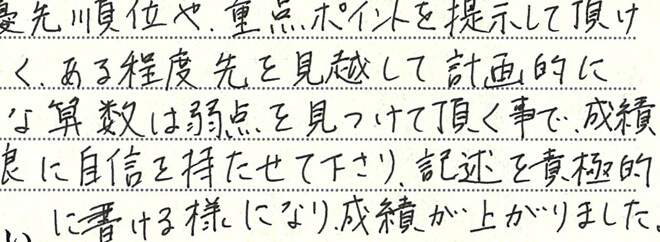 優先順位や、重点ポイントを提示して頂け
く、ある程度先を見越して計画的に
な算数は弱点を見つけて頂く事で、成績
良に自信を持たせて下さり、記述を責極的
に書ける様になり、成績が上がりました。